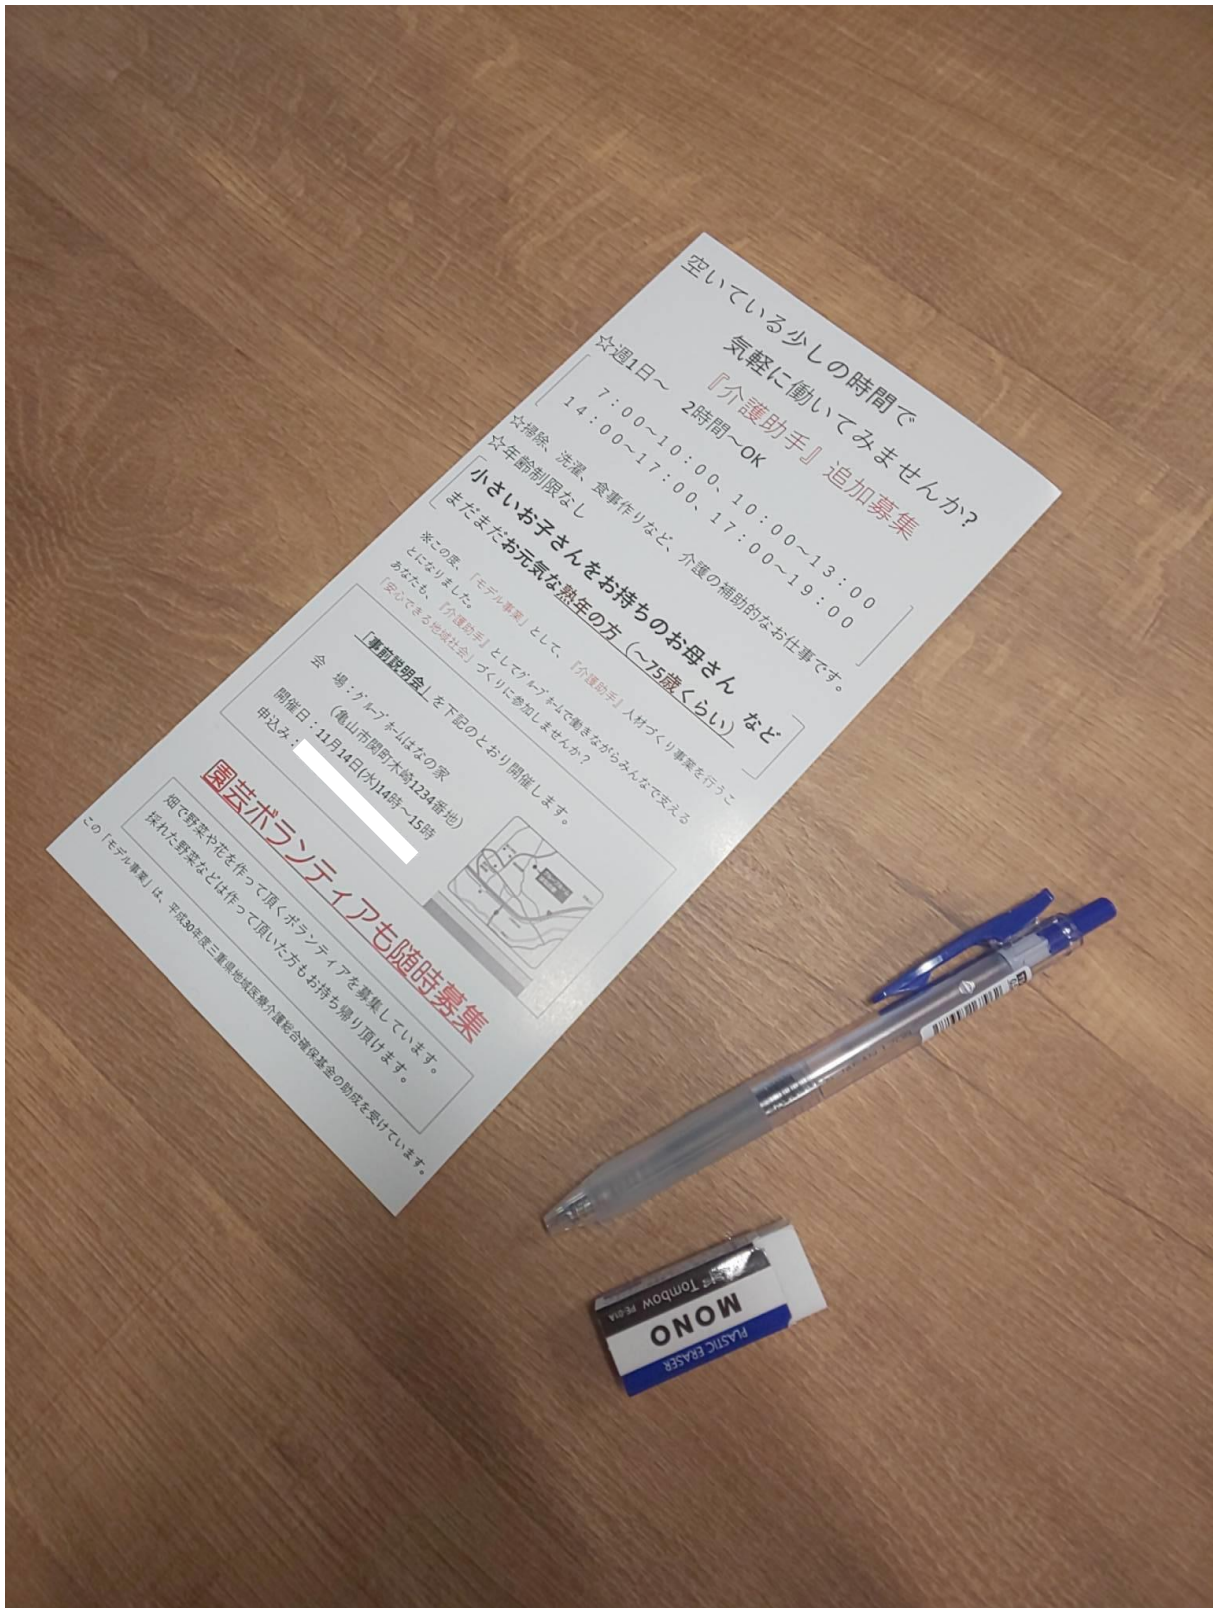 空いている少しの時間で
気軽に働いてみませんか?
『介護助手』追加募集
☆週1日～ 2時間～OK
7:00～10:00、10:00～13:00
14:00～17:00、17:00～19:00
☆掃除、洗濯、食事作りなど、介護の補助的なお仕事です。
☆年齢制限なし
小さいお子さんをお持ちのお母さん
まだまだお元気な熟年の方(～75歳くらい) など
※この度、『モデル事業』として、『介護助手』人材づくり事業を行うこ
とになりました。
あなたも、『介護助手』としてグループホームで働きながらみんなで支える
「安心できる地域社会」づくりに参加しませんか?
「事前説明会」を下記のとおり開催します。
会 場:グループホームはなの家
(亀山市関町木崎1234番地)
開催日:11月14日(水)14時～15時
申込み:
園芸ボランティアも随時募集
畑で野菜や花を作って頂くボランティアを募集しています。
採れた野菜などは作って頂いた方もお持ち帰り頂けます。
この「モデル事業」は、平成30年度三重県地域医療介護総合確保基金の助成を受けています。
Tombow PE-01A
MONO
PLASTIC ERASER